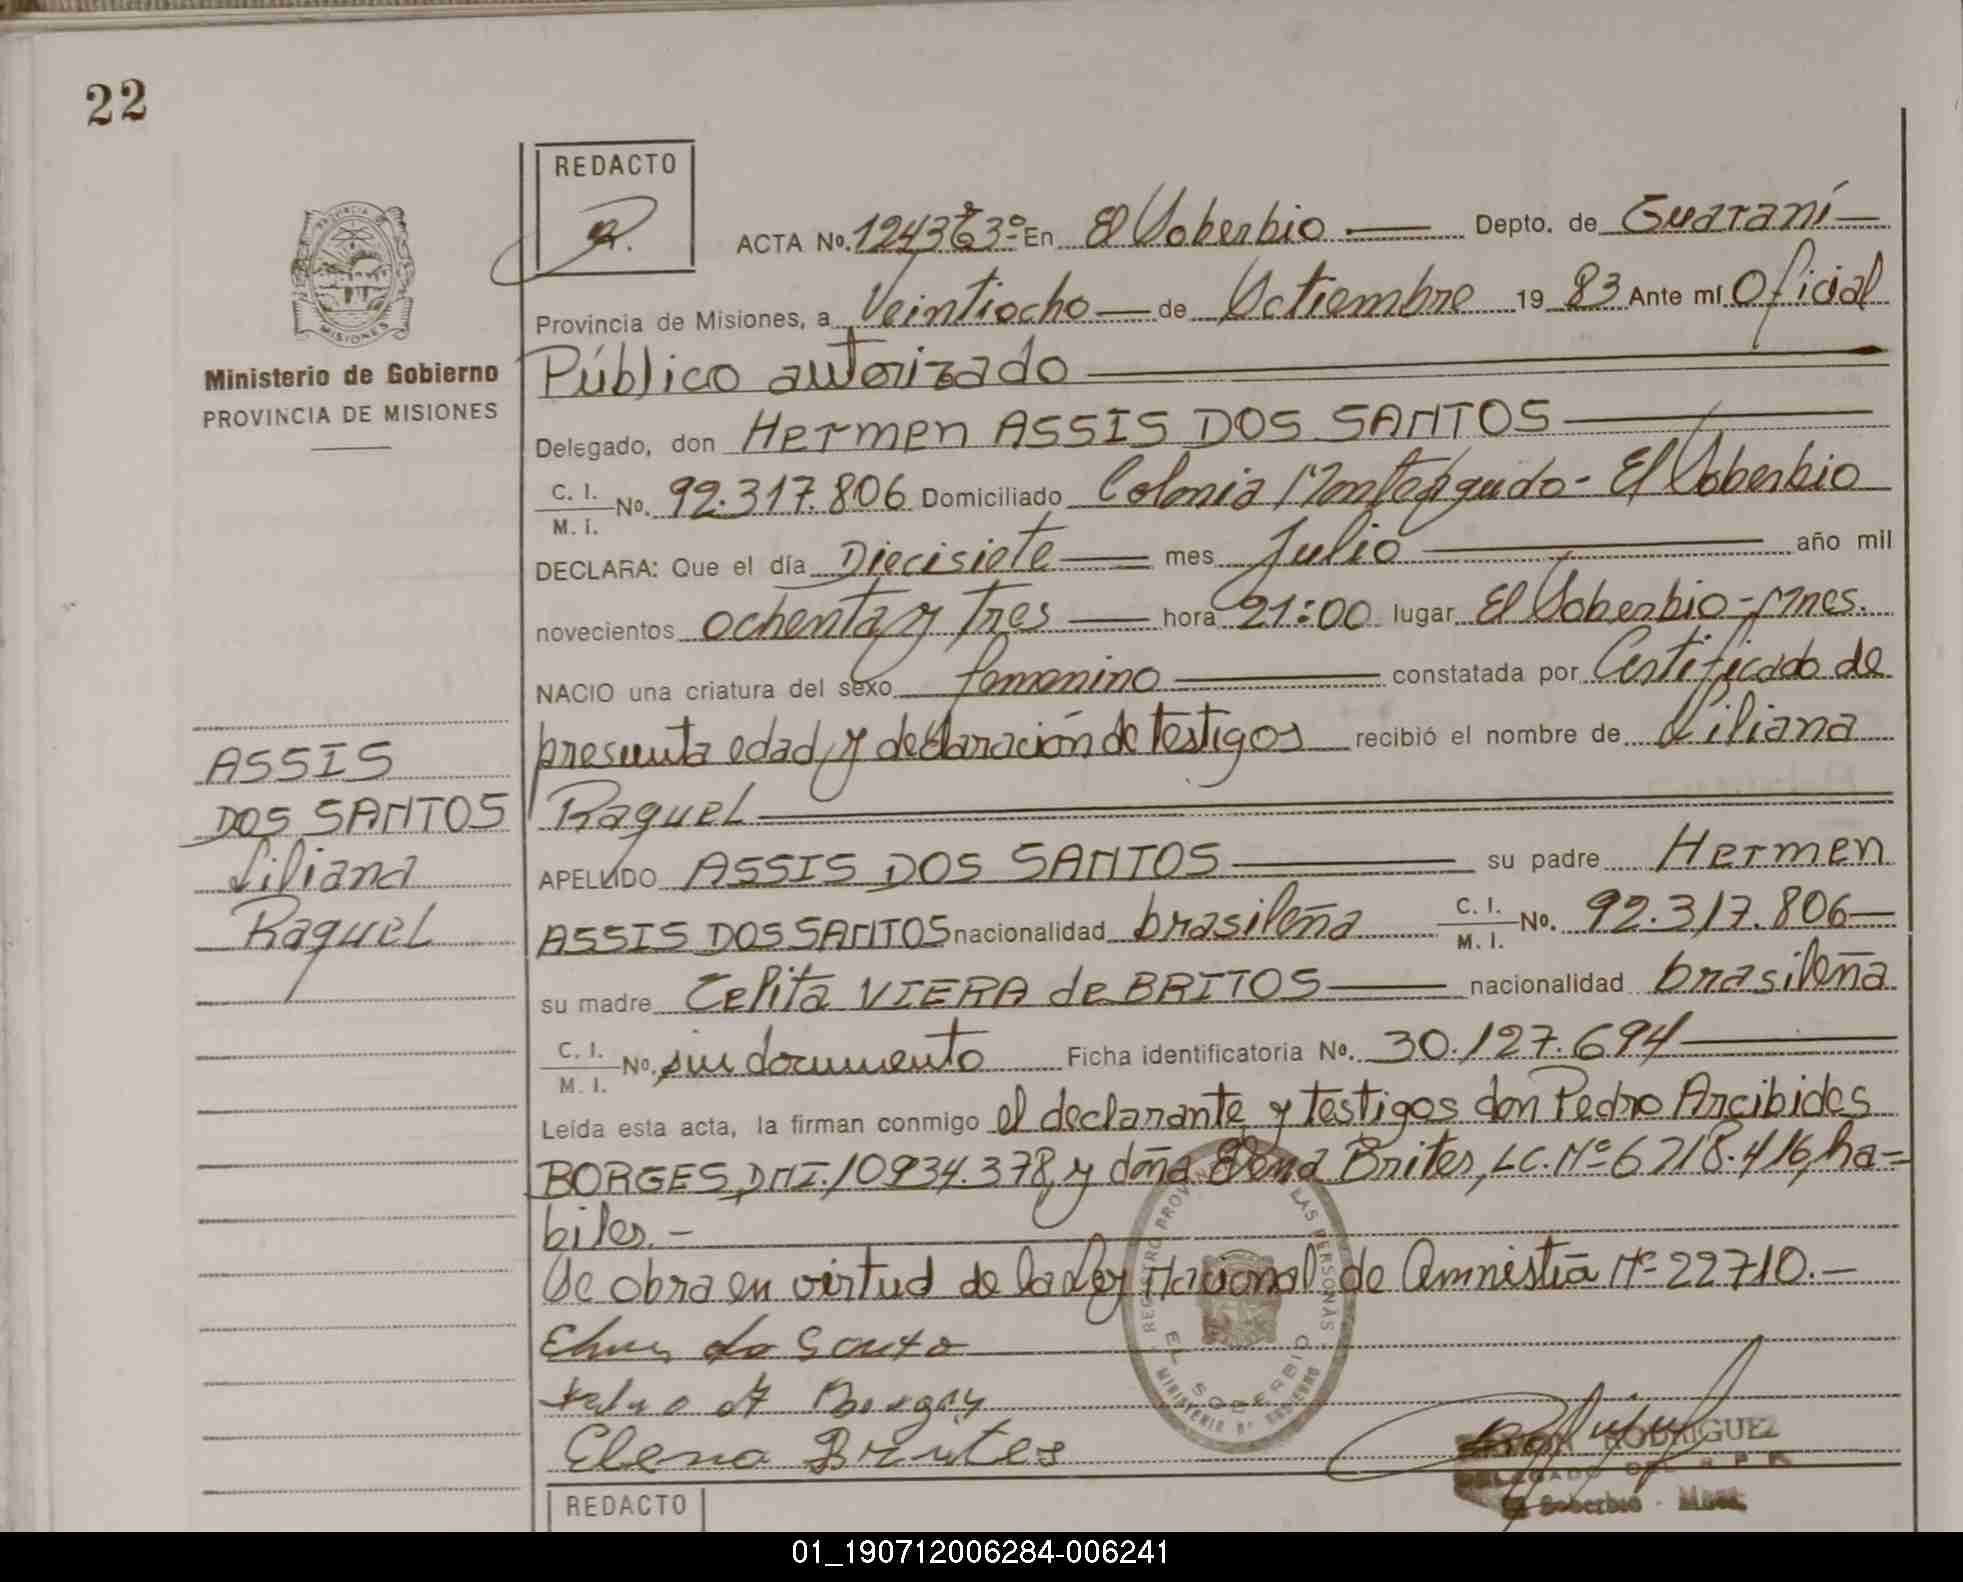 22
REDACTO
PROVINCIA DE
MISIONES
Ministerio de Gobierno
PROVINCIA DE MISIONES
ACTA No. 1243 3º En El Soberbio Depto. de Guaraní
Provincia de Misiones, a Veintiocho de Octiembre 19 83 Ante mí Oficial
Público autorizado
Delegado, don Hermen ASSIS DOS SANTOS
C. I. M. I. No. 92.317.806 Domiciliado Colonia Monteagudo - El Soberbio
DECLARA: Que el día Diecisiete mes Julio año mil
novecientos ochenta y tres hora 21:00 lugar El Soberbio - Mnes.
NACIO una criatura del sexo femenino constatada por Certificado de
presunta edad y declaración de testigos recibió el nombre de Liliana
Raquel
ASSIS
DOS SANTOS
Liliana
Raquel
APELLIDO ASSIS DOS SANTOS su padre Hermen
ASSIS DOS SANTOS nacionalidad brasileña C. I. M. I. No. 92.317.806
su madre Celita VIERA de BRITOS nacionalidad brasileña
C. I. M. I. No. sin documento Ficha identificatoria No. 30.127.694
Leída esta acta, la firman conmigo el declarante y testigos don Pedro Arcibides
BORGES, DNI. 10934.378, y doña Elena Brites, LC. Nº 6718.416, ha=
biles.-
Se obra en virtud de la Ley Nacional de Amnistía Nº 22710.-
Elena Brites
REGISTRO PROVIN LAS PERSONAS
EL SOBERBIO
MINISTERIO DE GOBIERNO
RODRIGUEZ
DELEGADO DEL R P P
El Soberbio - Mnes.
REDACTO
01_190712006284-006241